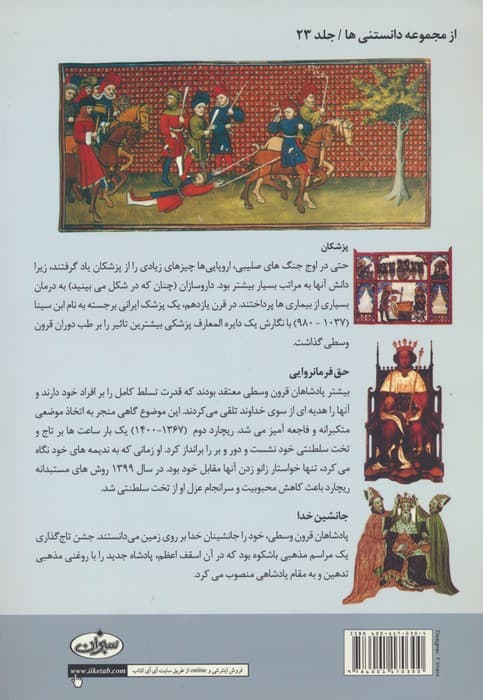 از مجموعه دانستنی ها / جلد ۲۳
پزشکان
حتی در اوج جنگ های صلیبی، اروپایی‌ها چیزهای زیادی را از پزشکان یاد گرفتند، زیرا
دانش آنها به مراتب بسیار بیشتر بود. داروسازان (چنان که در شکل می بینید) به درمان
بسیاری از بیماری ها پرداختند. در قرن یازدهم، یک پزشک ایرانی برجسته به نام ابن سینا
(۱۰۳۷ - ۹۸۰) با نگارش یک دایره المعارف پزشکی بیشترین تاثیر را بر طب دوران قرون
وسطی گذاشت.
حق فرمانروایی
بیشتر پادشاهان قرون وسطی معتقد بودند که قدرت تسلط کامل را بر افراد خود دارند و
آنها را هدیه ای از سوی خداوند تلقی می‌کردند. این موضوع گاهی منجر به اتخاذ موضعی
متکبرانه و فاجعه آمیز می شد. ریچارد دوم (۱۳۶۷-۱۴۰۰) یک بار ساعت ها بر تاج و
تخت سلطنتی خود نشست و دور و بر را برانداز کرد. او زمانی که به ندیمه های خود نگاه
می کرد، تنها خواستار زانو زدن آنها مقابل خود بود. در سال ۱۳۹۹ روش های مستبدانه
ریچارد باعث کاهش محبوبیت و سرانجام عزل او از تخت سلطنتی شد.
جانشین خدا
پادشاهان قرون وسطی، خود را جانشینان خدا بر روی زمین می‌دانستند. جشن تاج‌گذاری
یک مراسم مذهبی باشکوه بود که در آن اسقف اعظم، پادشاه جدید را با روغنی مذهبی
تدهین و به مقام پادشاهی منصوب می کرد.
سبزان
فروش اینترنتی و online از طریق سایت آی آی کتاب
www.iiketab.com
ISBN 600-117-030-9
9 786001 170300
Designer: F Imani